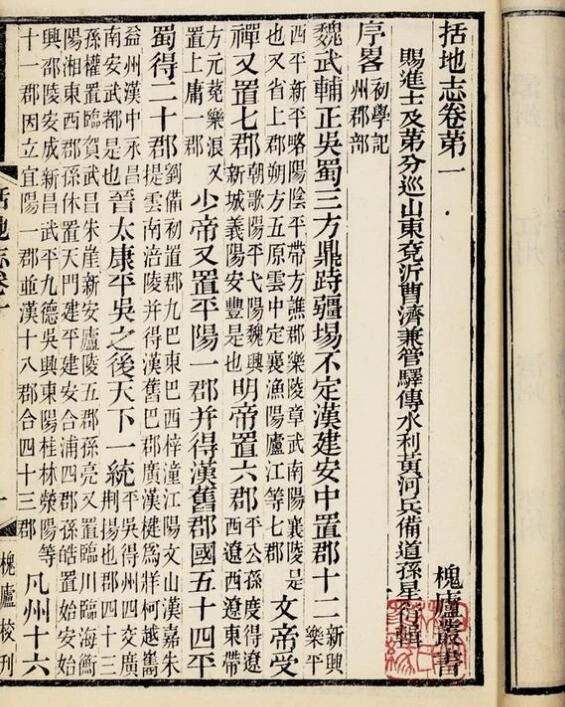 括地志卷第一 槐廬叢書
賜進士及第分巡山東兗沂曹濟兼管驛傳水利黃河兵備道孫星衍輯
序畧
初學記
州郡部
魏武輔正吳蜀三方鼎跱疆場不定漢建安中置郡十二
新興
樂平
西平新平略陽陰平帶方譙郡樂陵章武南陽襄陵是
也又省上郡朔方五原雲中定襄漁陽廬江等七郡
文帝受
禪又置七郡
朝歌陽平弋陽魏興
新城義陽安豐是也
明帝置六郡
平公孫度得遼
西遼西遼東帶
方元菟樂浪又
置上庸一郡
少帝又置平陽一郡并得漢舊郡國五十四平
蜀得二十郡
劉備初置郡九巴東巴西梓潼江陽文山漢嘉朱
提雲南涪陵并得漢舊巴郡廣漢犍爲牂柯越嶲
益州漢中永昌
南安武都是也
晉太康平吳之後天下一統
平吳得州四交廣
荆揚也郡四十三
孫權置臨賀武昌朱崖新安廬陵五郡孫亮又置臨川臨海衡
陽湘東西郡孫休置天門建平建安合浦四郡孫皓置始安始
興邵陵安成新昌武平九德吳興東陽桂林滎陽等
十一郡因立宜陽一郡並漢十八郡合四十三郡
凡州十六
括地志卷一
一
槐廬校刊